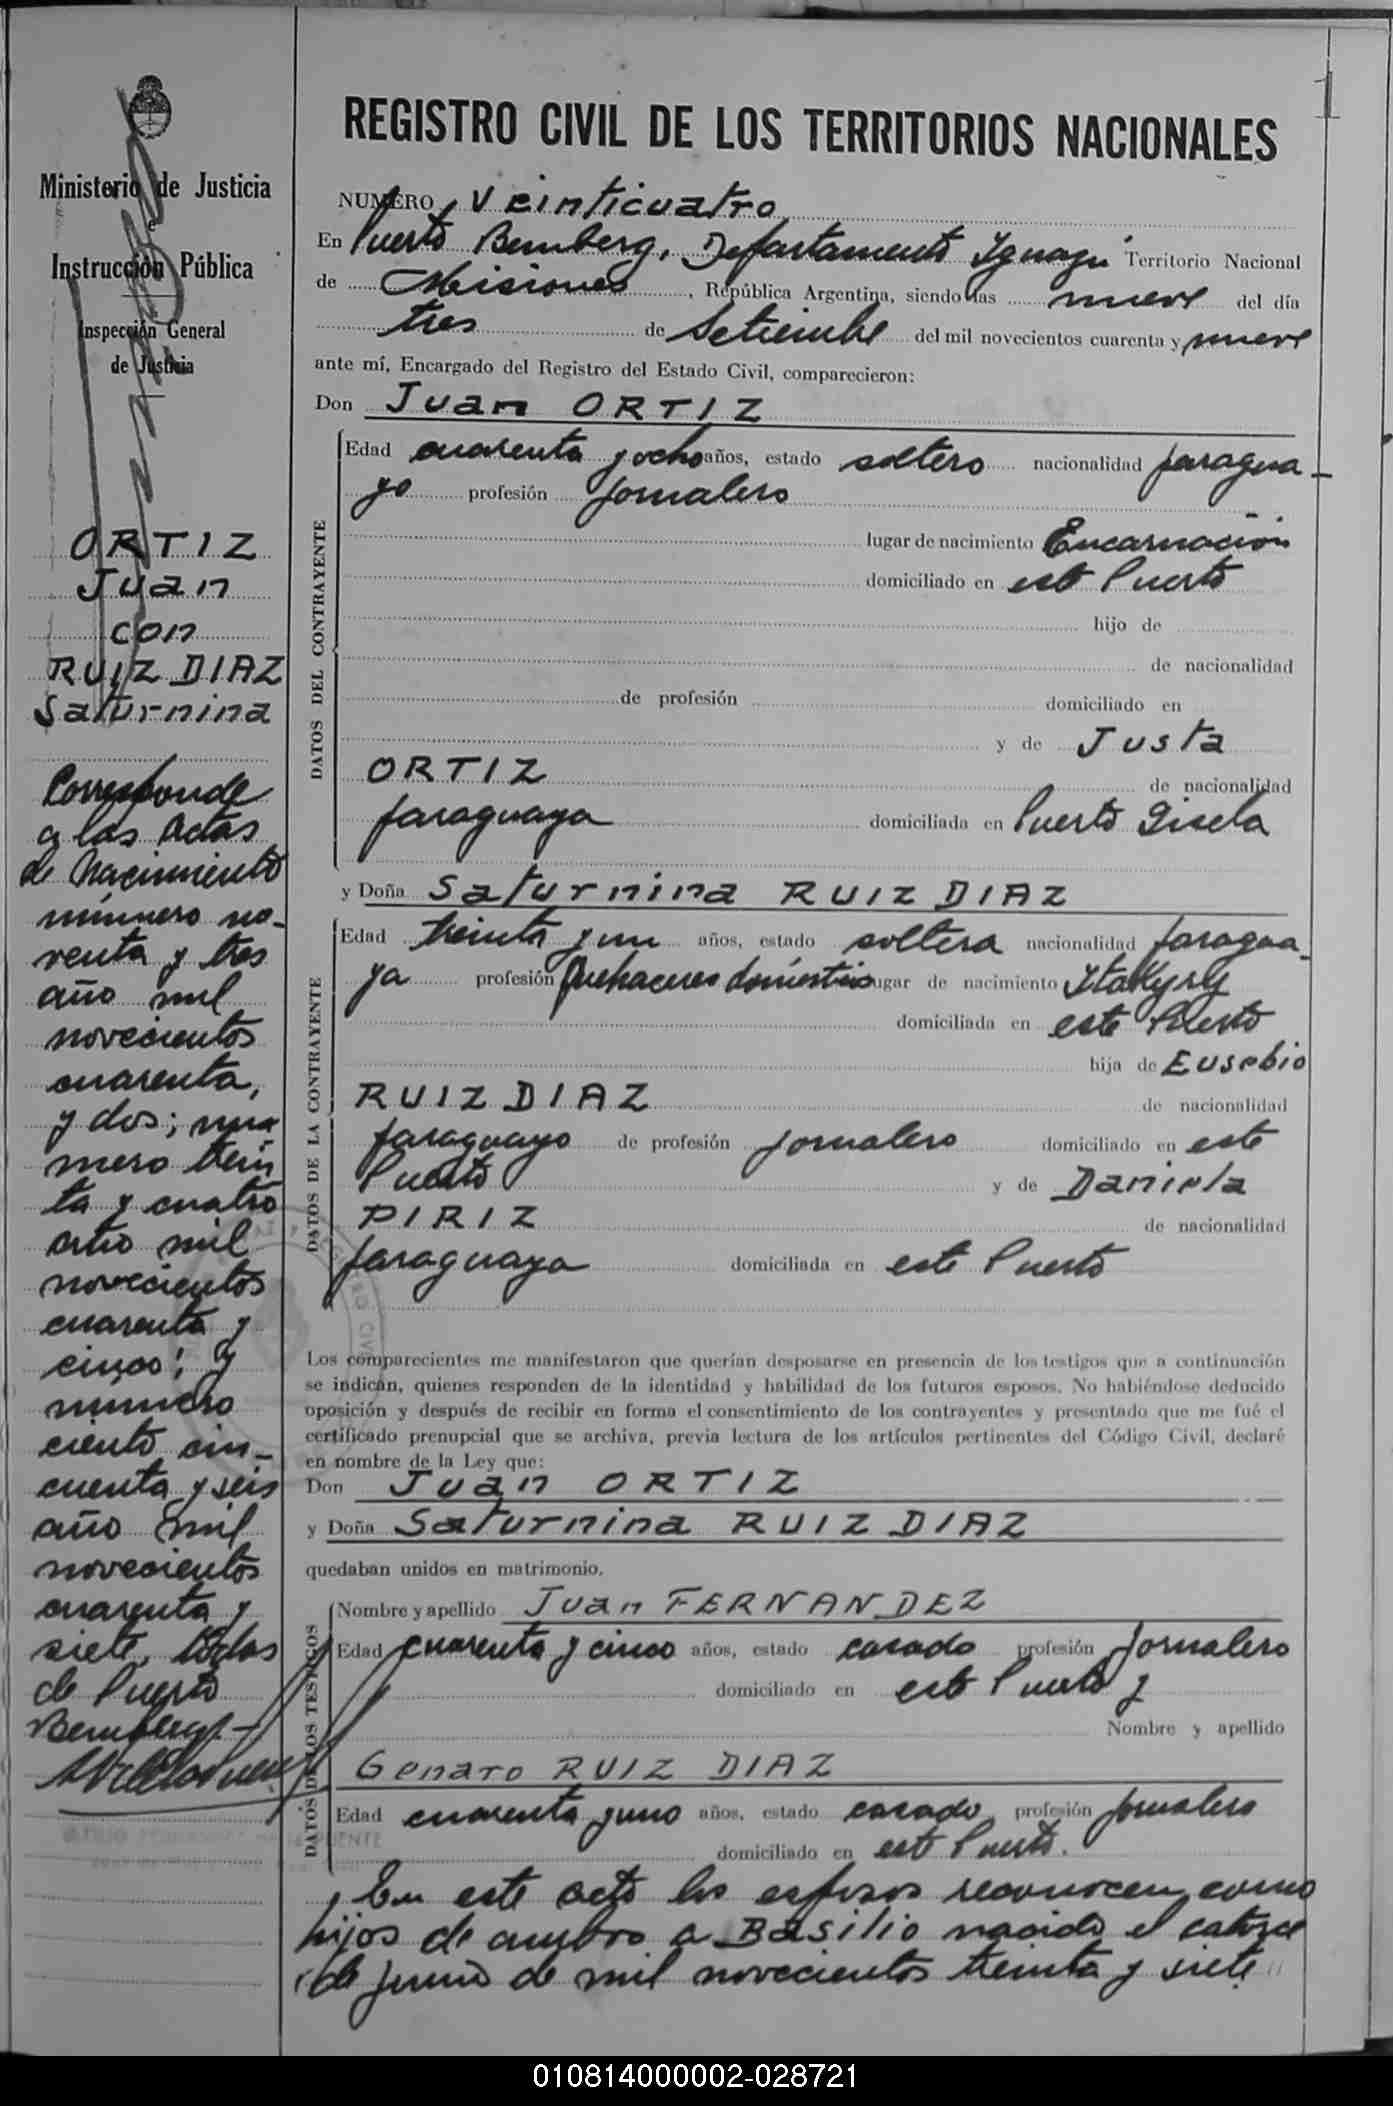 Ministerio de Justicia
e
Instrucción Pública
Inspección General
de Justicia
ORTIZ
Juan
con
RUIZ DIAZ
Saturnina
Corresponde
a las Actas
de Nacimiento
número no-
venta y tres
año mil
novecientos
cuarenta,
y dos; nú
mero trein
ta y cuatro
año mil
novecientos
cuarenta y
cinco; y
número
ciento cin-
cuenta y seis
año mil
novecientos
cuarenta y
siete, todas
de Puerto
Bemberg.-
REGISTRO CIVIL DE LOS TERRITORIOS NACIONALES
NUMERO Veinticuatro
En Puerto Bemberg, Departamento Iguazú Territorio Nacional
de Misiones, República Argentina, siendo las nueve del día
tres de Setiembre del mil novecientos cuarenta y nueve
ante mí, Encargado del Registro del Estado Civil, comparecieron:
Don Juan ORTIZ
DATOS DEL CONTRAYENTE
Edad cuarenta y ocho años, estado soltero nacionalidad paragua-
yo profesión jornalero
lugar de nacimiento Encarnación
domiciliado en este Puerto
hijo de
de nacionalidad
de profesión domiciliado en
y de Justa
ORTIZ de nacionalidad
paraguaya domiciliada en Puerto Gisela
y Doña Saturnina RUIZ DIAZ
DATOS DE LA CONTRAYENTE
Edad treinta y un años, estado soltera nacionalidad paragua-
ya profesión Quehaceres domésticos lugar de nacimiento Itakyry
domiciliada en este Puerto
hija de Eusebio
RUIZ DIAZ de nacionalidad
paraguayo de profesión jornalero domiciliado en este
Puerto y de Daniela
PIRIZ de nacionalidad
paraguaya domiciliada en este Puerto
Los comparecientes me manifestaron que querían desposarse en presencia de los testigos que a continuación
se indican, quienes responden de la identidad y habilidad de los futuros esposos. No habiéndose deducido
oposición y después de recibir en forma el consentimiento de los contrayentes y presentado que me fué el
certificado prenupcial que se archiva, previa lectura de los artículos pertinentes del Código Civil, declaré
en nombre de la Ley que:
Don Juan ORTIZ
y Doña Saturnina RUIZ DIAZ
quedaban unidos en matrimonio.
DATOS DE LOS TESTIGOS
Nombre y apellido Juan FERNANDEZ
Edad cuarenta y cinco años, estado casado profesión jornalero
domiciliado en este Puerto y
Nombre y apellido
Genaro RUIZ DIAZ
Edad cuarenta y uno años, estado casado, profesión jornalero
domiciliado en este Puerto.
En este acto los esposos reconocen como
hijos de ambos a Basilio nacido el catorce
de junio de mil novecientos treinta y siete
010814000002-028721